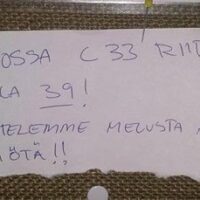 OSSA C33 RIIT
LA 39!
TELEMME MELUSTA,
YÖTÄ!!